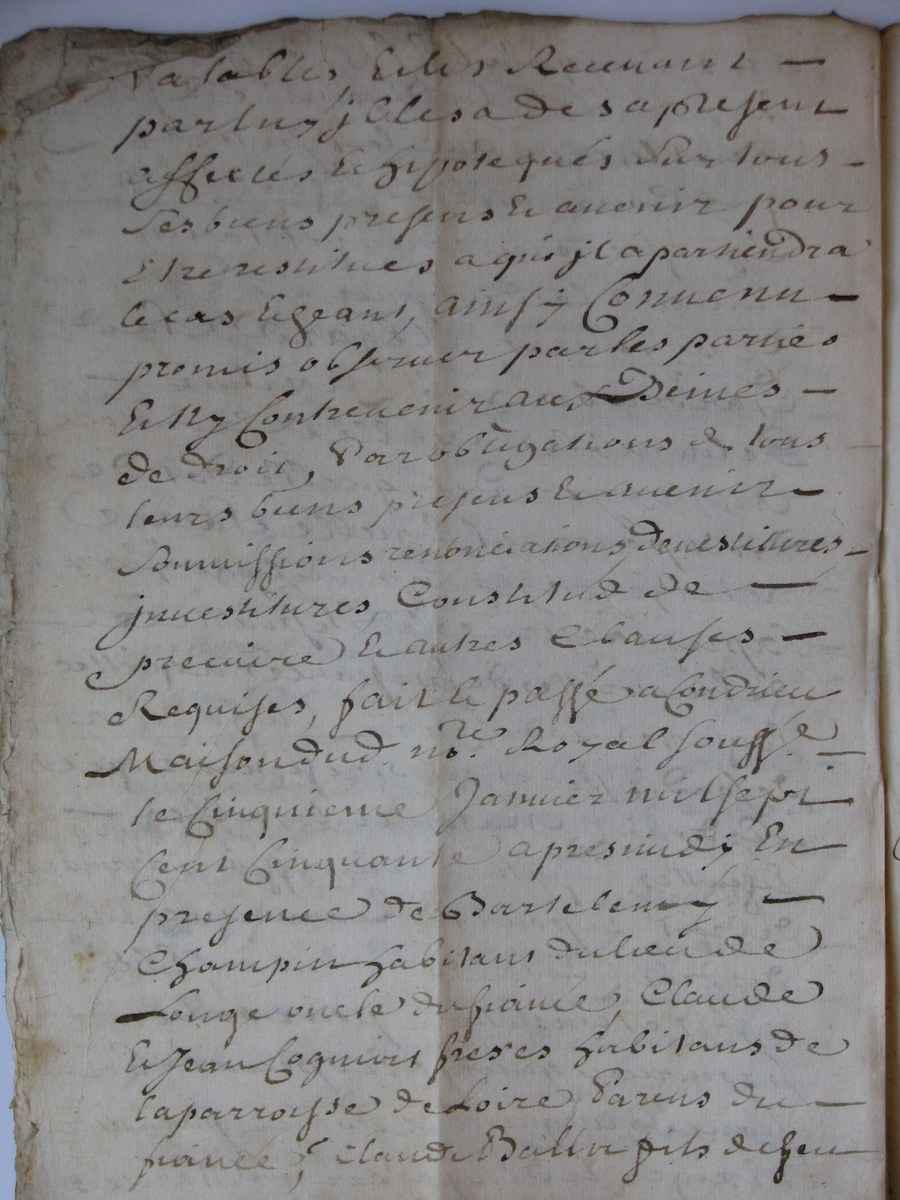 valables Et les Recevant
par luy jl les a des a present
affectés Et hipotequés sur tous
ses biens presens Et avenir pour
Etre restitues a qui jl apartiendra
le cas Egeant, ainsy Convenu
promis observer par les parties
Et Ny Contrevenir aux Peines
de droit, Par obligations de tous
leurs biens presens Et avenir
soumissions renonciations devestitures
jnvestitures, Constitud de
precaire Et autres Clauses
Requises, fait Et passé a Condrieu
Maison dud. nre. Royal soussé.
le Cinquieme Janvier mil sept
Cent Cinquante apres midy En
presence de Bartelemy
Champin habitant du lieu de
Longe oncle du fiancé, Claude
Et Jean Cogniou freres habitans de
la parroisse de Loire Parens du
fiancé, Claude Ballu fils de feu